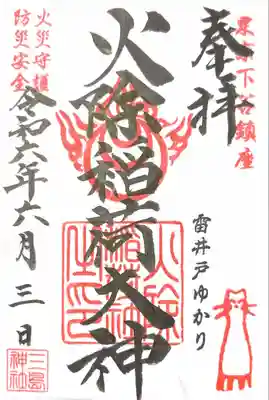 東京下谷鎮座
奉拝
雷井戸ゆかり
火除稲荷大神
火災守護
防災安全
令和六年六月三日
三島
神社